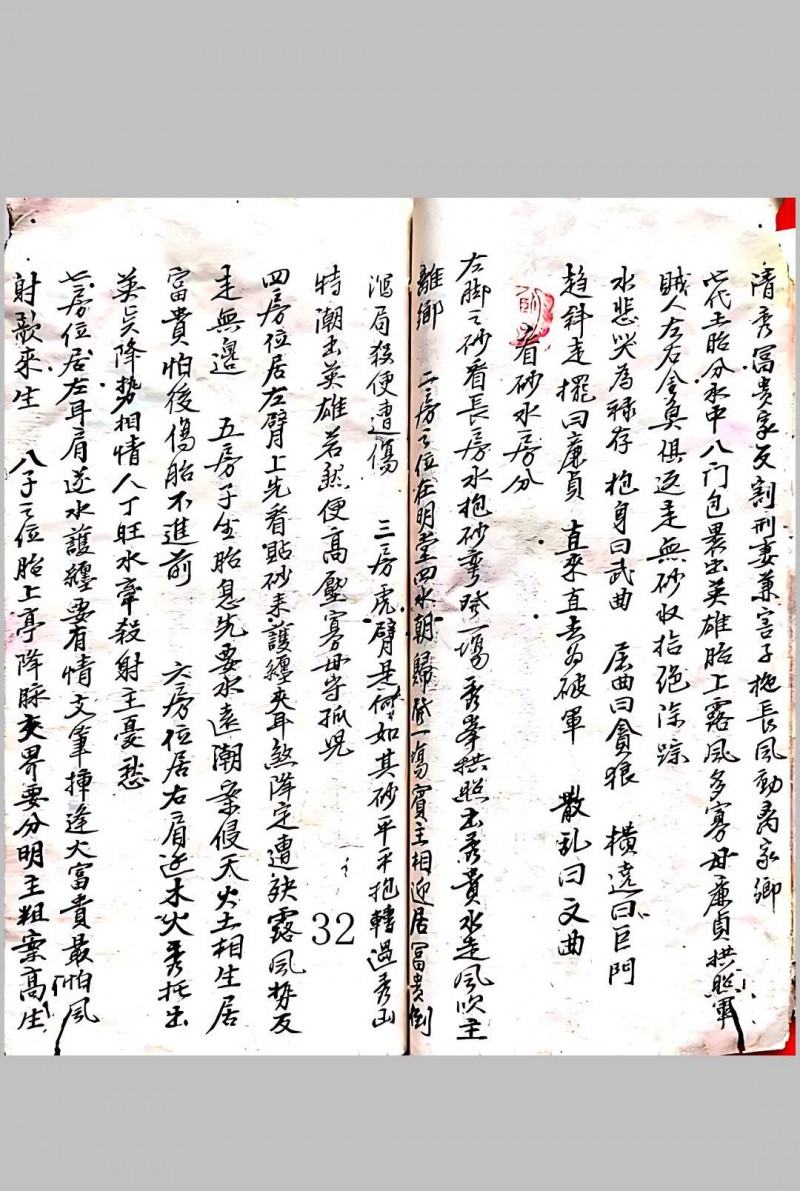 清秀富貴家反割刑妻兼害子拖長風動离家鄉
七代土胎分水中八门包裹出英雄胎上露風多寡母廉貞拱照軍
賊人左右全莫俱返走無砂收拾绝除踪
水悲哭為禄存 抱身曰武曲 屈曲曰貪狼 橫遶曰巨門
趋斜走擺曰廉貞 直來直去为破軍 散乱曰文曲
看砂水房分
左脚之砂看長房水抱砂弯發一塲秀峯拱照出秀貴水走風吹主
離鄉 二房之位在明堂四水朝歸發一塲賓主相迎居冨貴倒
瀉局殺便遭傷 三房虎臂是何如其砂平平抱轉過秀山
特潮出英雄若然便高壓寡母守孤児
四房位居左臂上先看點砂来護纏夾耳煞降定遭缺露風势反
走無邊 五房子生胎息先要水遠潮案侵天火土相生居
富貴怕後傷胎不進前 六房位居右肩逆木火秀托出
英吴降勢相情人丁旺水牵殺射主憂愁
七房位居左耳肩逆水護纏要有情文筆挿逢大富貴最怕風
射歌來生 八子之位胎上亭降脉夾界要分明主粗案高生
32